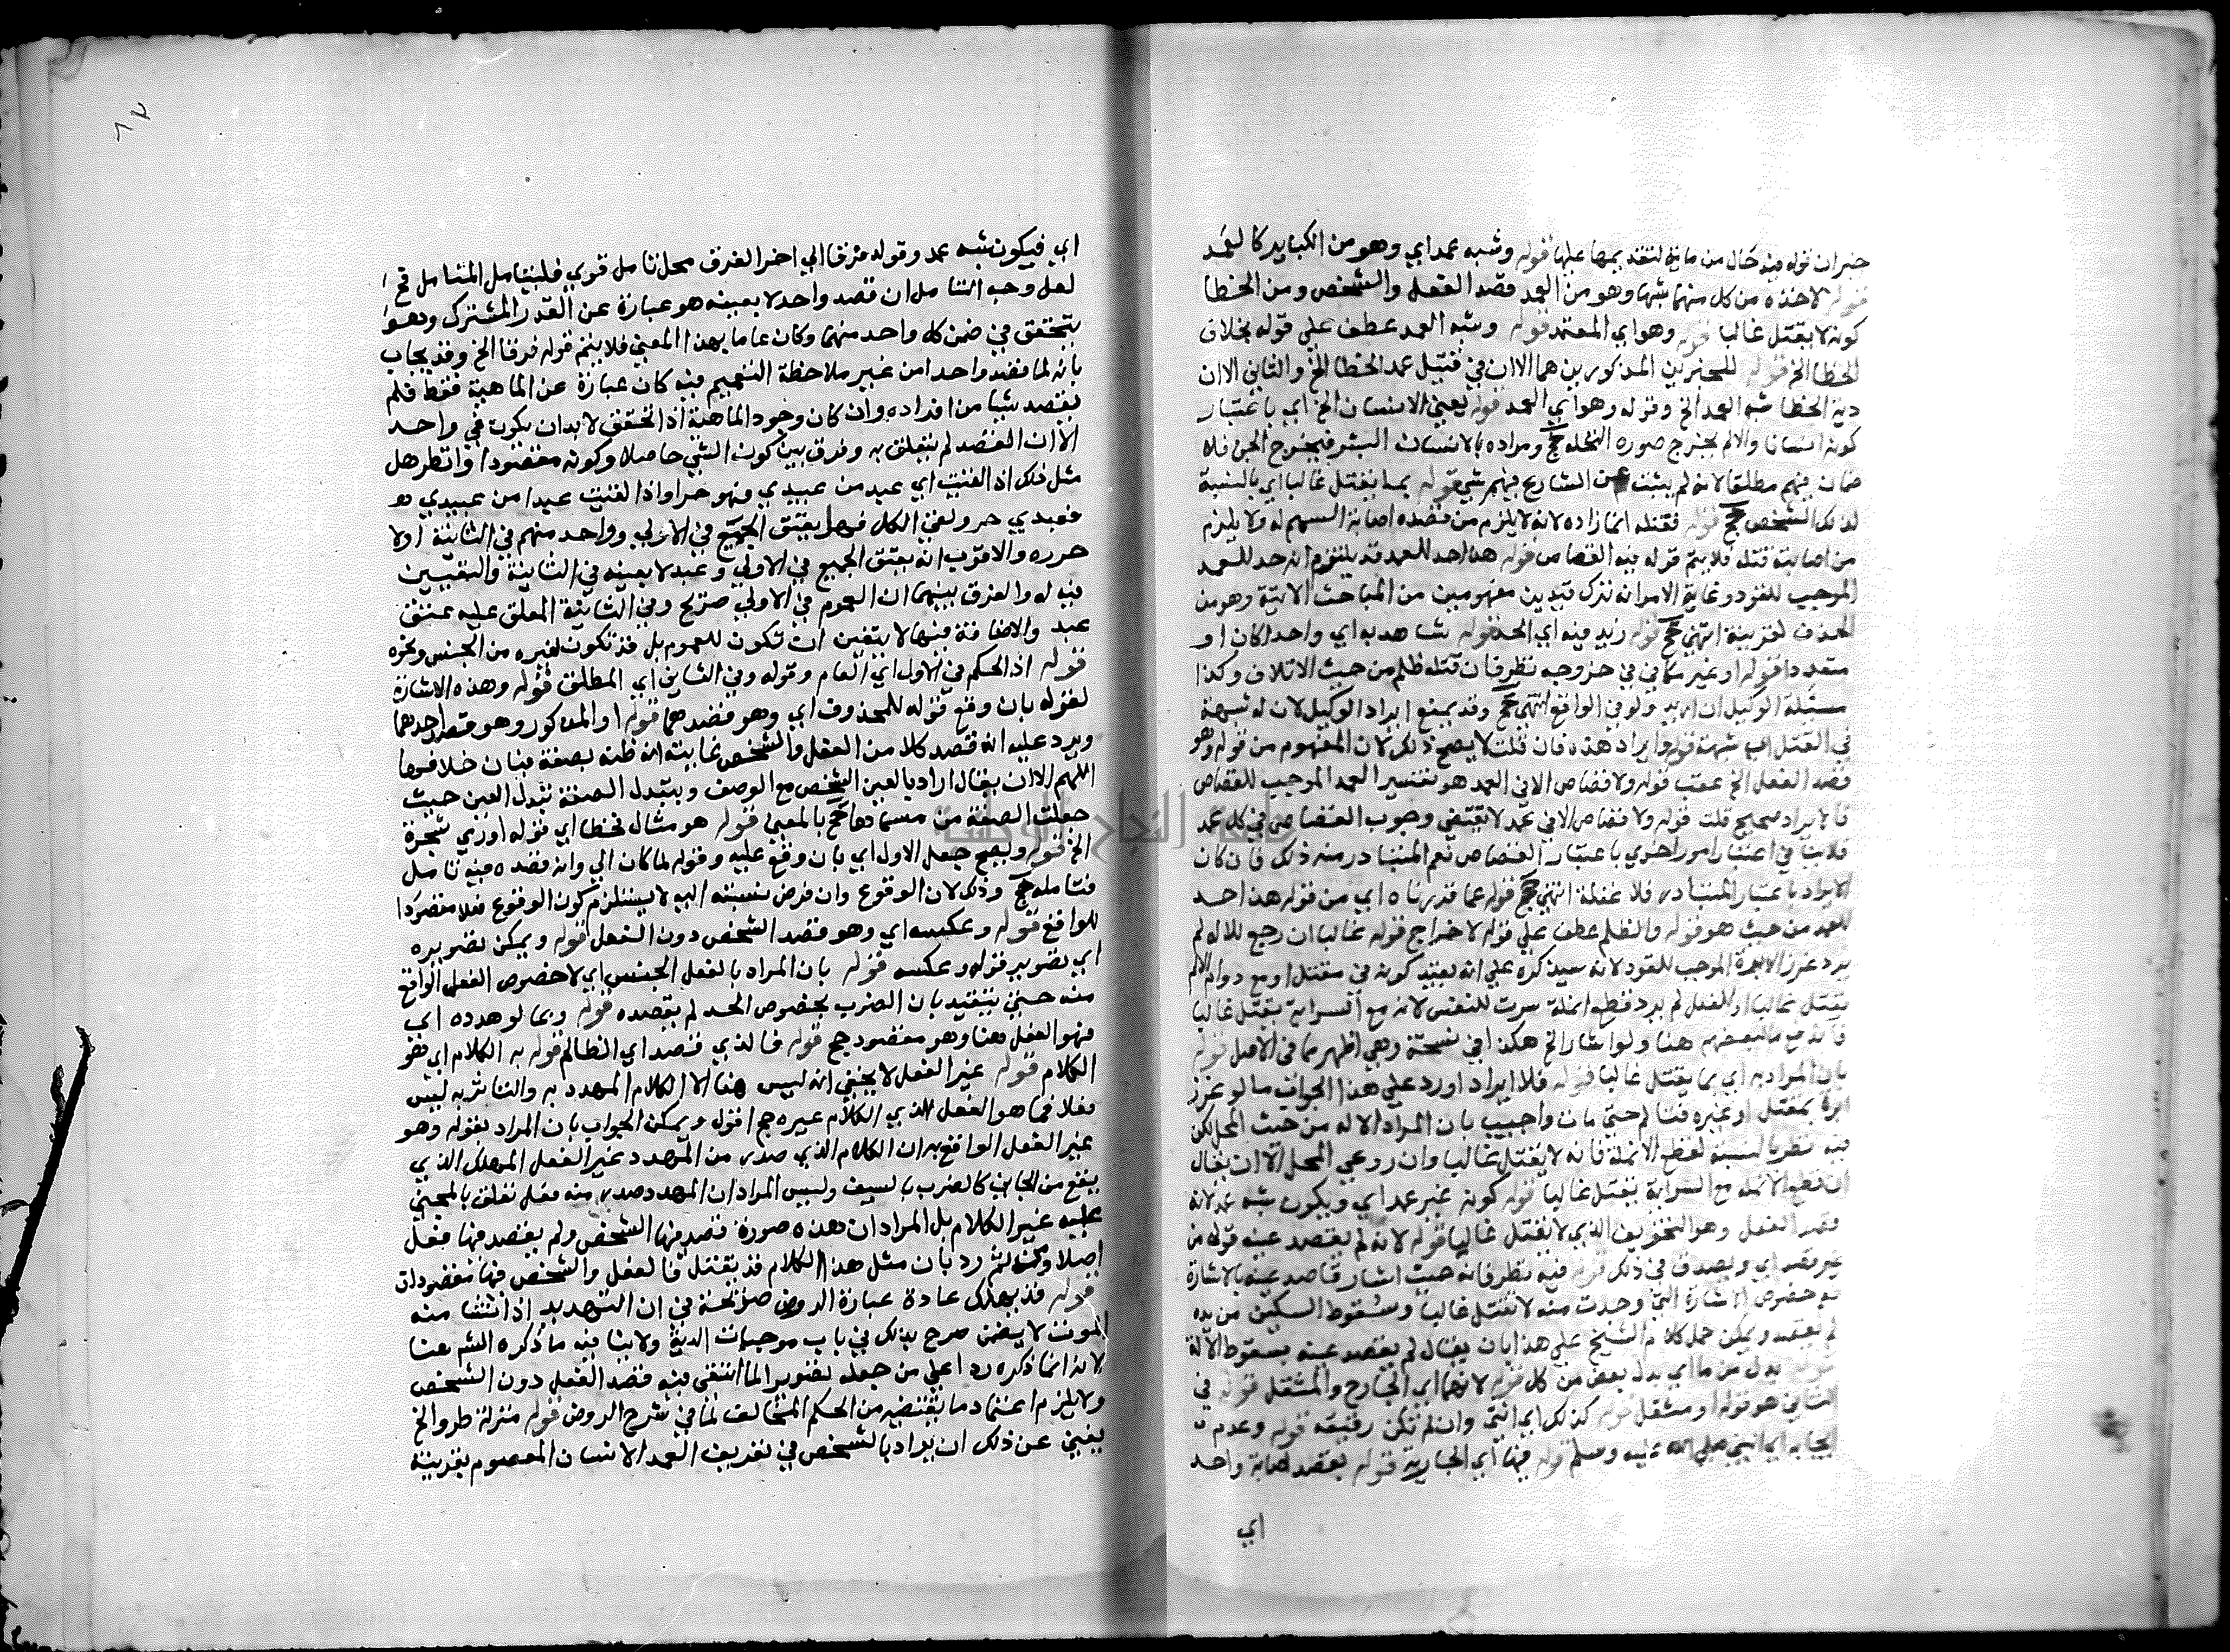 خبران قوله فيه حال من مائة لتقديمها عليها قوله وشبه عمد اي وهو من الكبائر كالعمد
قوله لاخذه من كل منهما شبها وهو من العمد قصد الفعل والشخص ومن الخطا
كونه لا يقتل غالبا قوله وهو اي المعتمد قوله وشبه العمد عطف علي قوله بخلاف
الخطا الخ قوله للخبرين المذكورين هما الا ان في قتيل عمد الخطا الخ والثاني الا ان
دية الخطا شبه العمد الخ وقوله وهو اي العمد قوله يعني الانسان الخ اي باعتبار
كونه انسانا والا لم يخرج صورة النخلة حج ومراده بالانسان البشر فيخرج الجن فلا
ضمان فيهم مطلقا لانه لم يثبت عن الشارع فيهم شي قوله بما يقتل غالبا اي بالنسبة
لذلك الشخص حج قوله فقتله انما زاده لانه لا يلزم من قصده اصابة السهم له ولا يلزم
من اصابته قتله فلا يتم قوله فيه القصاص قوله هذا حد للعمد قد يلتزم انه حد للعمد
الموجب للقود وغاية الامر انه ترك قيدين مفهومين من المباحث الاتية وهو من
الحذف لقرينة انتهي حج قوله زيد فيه اي الحد قوله شاهد به اي واحدا كان او
متعددا قوله او غير مكافي في خروجه نظر فان قتله ظلم من حيث الاتلاف وكذا
مسئلة الوكيل ان اريد ولو في الواقع انتهي حج وقد يمنع ايراد الوكيل لان له شبهة
في القتل اي شبهة قوله وايراد هذه فان قلت لا يصح ذلك لان المفهوم من قوله وهو
قصد الفعل الخ عقب قوله ولا قصاص الا في العمد هو تفسير العمد الموجب للقصاص
فالايراد صحيح قلت قوله ولا قصاص الا في عمد لا يقتضي وجوب القصاص في كل عمد
فلا ينافي اعتبار امور اخري باعتبار القصاص نعم المتبادر منه ذلك فان كان
الايراد باعتبار المتبادر فلا غفلة انتهي حج قوله عما قدرناه اي من قوله هذا حد
للعمد من حيث هو قوله والظلم عطف علي قوله لاخراج قوله غالبا ان رجع للالة لم
يرد غرز الابرة الموجب للقود لانه سيذكره علي انه يفيد كونه في مقتل او مع دوام الالم
يقتل غالبا او للفعل لم يرد قطع انملة سرت للنفس لانه مع السراية يقتل غالبا
فاندفع ما لبعضهم هنا ولو اشار الخ هكذا في نسخة وهي اظهر مما في الاصل قوله
بان المراد به اي بما يقتل غالبا قوله فلا ايراد اورد علي هذا الجواب ما لو غرز
ابرة بمقتل او غيره فتالم حتي مات واجيب بان المراد الالة من حيث المحل لكن
فيه نظر بالنسبة لقطع الانملة فانه لا يقتل غالبا وان روعي المحل الا ان يقال
ان قطع الانملة مع السراية يقتل غالبا قوله كونه غير عمد اي ويكون شبه عمد لانه
وقصد الفعل وهو التخويف الذي لا يقتل غالبا قوله لانه لم يقصد عينه قوله من
غير قصد اي ويصدق في ذلك قوله فيه نظر فانه حيث اشار قاصد عينه بالاشارة
مع خصوص الاشارة التي وجدت منه لا تقتل غالبا وسقوط السكين من يده
لم يقصد ويمكن حمل كلام الشيخ علي هذا بان يقال لم يقصد عينه بسقوط الالة
قوله بدل من ما اي بدل بعض من كل قوله لانهما اي الجارح والمثقل قوله في
الثاني هو قوله او مثقل قوله كذلك اي انتي وان لم تكن رقيقة قوله وعدم
ايجابه اي النبي صلي الله عليه وسلم قوله فيها اي الجارية قوله بقصد اصابة واحد
اي
اي فيكون شبه عمد وقوله فرقا الي اخر الفرق محل تامل قوي فليتامل المتامل قح
لعل وجه التامل ان قصد واحد لا بعينه هو عبارة عن القدر المشترك وهو
يتحقق في ضمن كل واحد منهما وكان عاما بهذا المعني فلا يتم قوله فرقا الخ وقد يجاب
بانه لما قصد واحدا من غير ملاحظة التعميم فيه كان عبارة عن الماهية فقط فلم
يقصد شيا من افراده وان كان وجود الماهية اذا تحقق لا بد ان يكون في واحد
الا ان القصد لم يتعلق به وفرق بين كون الشي حاصلا وكونه مقصودا وانظر هل
مثل ذلك اذا لقيت اي عبد من عبيدي فهو حر او اذا لقيت عبدا من عبيدي هو
فعبدي حر ولقي الكل فهل يعتق الجميع في الاولي وواحد منهم في الثانية اولا
حرره والاقرب انه يعتق الجميع في الاولي وعبد لا بعينه في الثانية والتعيين
فيه له والفرق بينهما ان العموم في الاولي صريح وفي الثانية المعلق عليه عتق
عبد والاضافة فيها لا يتعين ان تكون للعموم بل قد تكون لغيره من الجنس ونحوه
قوله اذ الحكم في الاول اي العام وقوله وفي الثاني اي المطلق قوله وهذه الاشارة
لقوله بان وقع قوله للمحذوف اي وهو قصدهما قوله او المذكور وهو قصد احدهما
ويرد عليه انه قصد كلا من الفعل والشخص غايته انه ظنه بصفة فبان خلافها
اللهم الا ان يقال اراد بالعين الشخص مع الوصف ويتبدل الصفة تبدل العين حيث
جعلت الصفة من مسماها حج بالمعني قوله هو مثال لخطا اي قوله اورمي شجرة
الخ قوله ويصح جعل الاول اي بان وقع عليه وقوله لما كان الي وانه قصده فيه تامل
فتامله حج وذلك لان الوقوع وان فرض نسبته اليه لا يستلزم كون الوقوع فعلا مقصودا
للواقع قوله وعكسه اي وهو قصد الشخص دون الفعل قوله ويمكن تصويره
اي تصوير قوله وعكسه قوله بان المراد بالفعل الجنس اي لا خصوص الفعل الواقع
منه حتي يتقيد بان الضرب بخصوص الحد لم يقصده قوله وبما لو هدده اي
فهو الفعل هنا وهو مقصود حج قوله فالذي قصد اي الظالم قوله به الكلام اي هو
الكلام قوله غير الفعل لا يخفي انه ليس هنا الا الكلام المهدد به والتاثر به ليس
فعلا فما هو الفعل الذي الكلام غيره حج اقول ويمكن الجواب بان المراد بقوله وهو
غير الفعل الواقع به ان الكلام الذي صدر من المهدد غير الفعل المهلك الذي
يقع من الجاني كالضرب بالسيف وليس المراد ان المهدد صدر منه فعل تعلق بالمجني
عليه غير الكلام بل المراد ان هذه صورة قصد فيها الشخص ولم يقصد فيها فعل
اصلا ومن ثم رد بان مثل هذا الكلام قد يقتل فالفعل والشخص فيها مقصودان
قوله قد يهلك عادة عبارة الروض صريحة في ان التهديد اذا نشا منه
الموت لا يضمن صرح بذلك في باب موجبات الدية ولا ينافيه ما ذكره الشم هنا
لانه انما ذكره ردا علي من جعله تصويرا لما انتفي فيه قصد الفعل دون الشخص
ولا يلزم اعتماد ما يقتضيه من الحكم المخالف لما في شرح الروض قوله منزلة طرو الخ
يغني عن ذلك ان يراد بالشخص في تعريف العمد الانسان المعصوم بقرينة